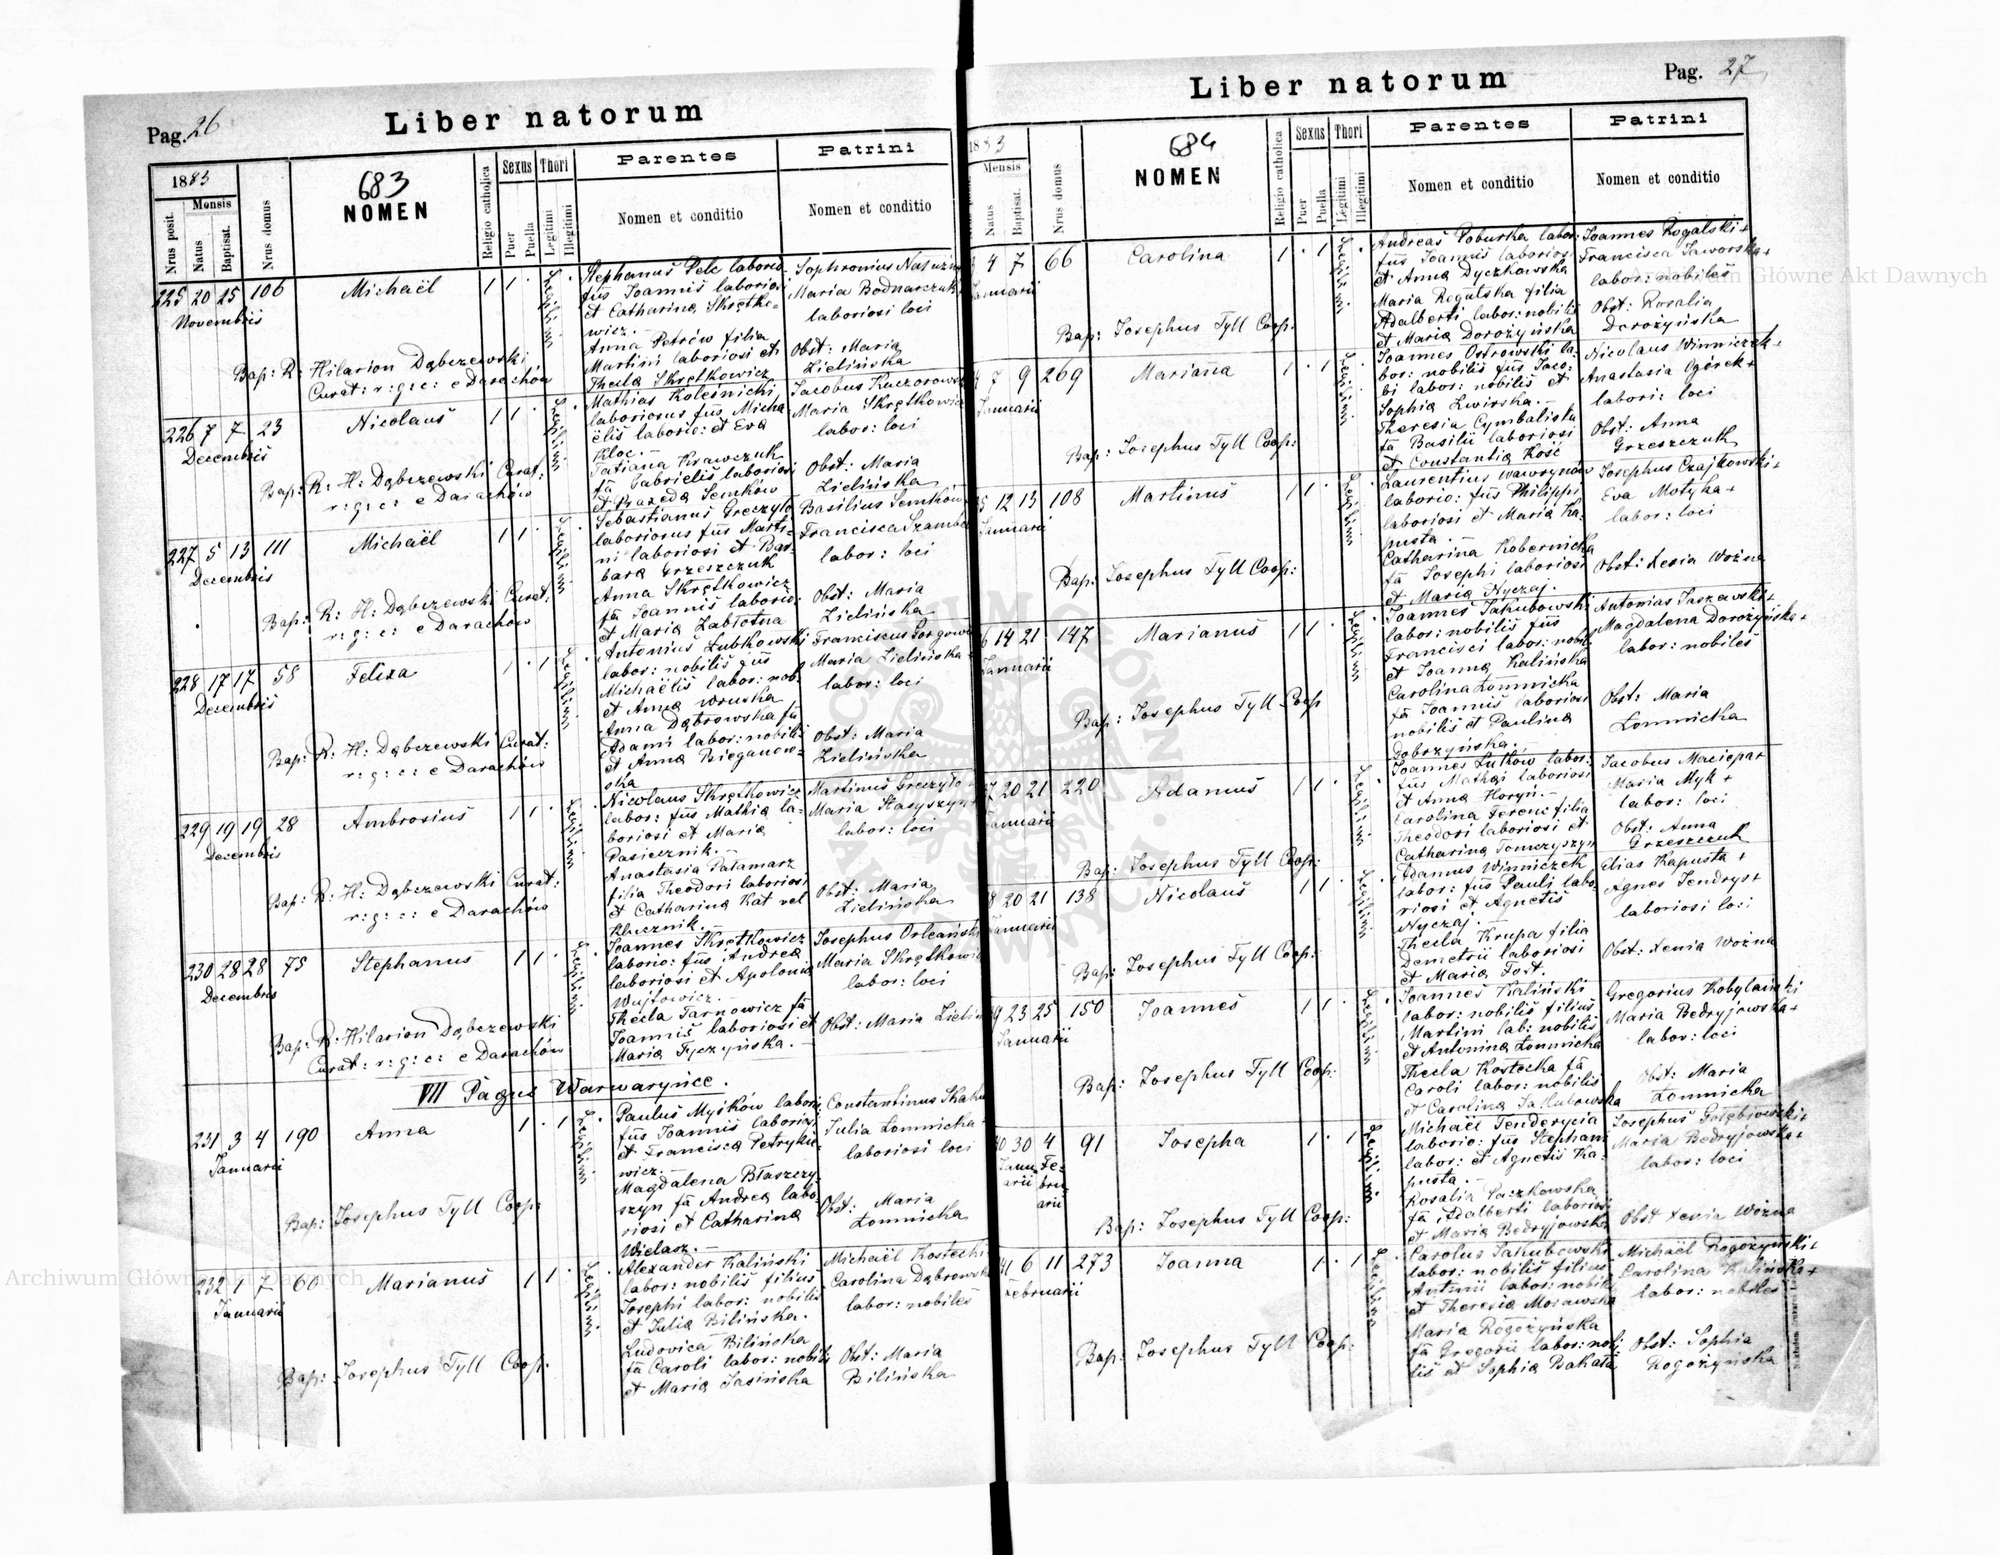 Pag. 26
Liber natorum
1883
Mensis
Nrus posit.
Natus
Baptisat.
Nrus domus
683
NOMEN
Religio catholica
Sexus
Puer
Puella
Thori
Legitimi
Illegitimi
Parentes
Nomen et conditio
Patrini
Nomen et conditio
225 20 25 106 Michaël 1 1 ·
Novembris
Bap: R: Hilarion Dąbczewski
Curat: r: g: c: e Darachów
Stephanus Pelc laborio
fũs Joannis laboriosi
et Catharina Skrętko-
wicz.—
Anna Petrów filia
Martini laboriosi et
Thecla Skrętkowicz
Maria Bodnarczuk
laboriosi loci
Obst: Maria
Zielińska
226 7 7 23 Nicolaus 1 1 ·
Decembris
Bap: R: H: Dąbczewski Curat:
r: g: c: e Darachów
Mathias Koleśnicki
laboriosus fũs Micha
ëlis laborio: et Eva
Kloc.—
Tatiana Krawczuk
fã Gabrielis laboriosi
et Prazeda Semków
Jacobus Kaczorows
Maria Skrętkowicz
labor: loci
Obst: Maria
Zielińska
227 5 13 111 Michaël 1 1 ·
Decembris
Bap: R: H: Dąbczewski Curat:
r: g: c: e Darachów
Sebastianus Greczyło
laboriosus fũs Marti-
ni laboriosi et Bar-
bara Grzeszczuk
Anna Skrętkowicz
fã Joannis laborio:
et Maria Zabłotna
Basilius Semków
Francisca Szamba
labor: loci
Obst: Maria
Zielińska
228 17 17 58 Felixa 1 · 1
Decembris
Bap: R: H: Dąbczewski Curat:
r: g: c: e Darachów
Antonius Lubkowski
labor: nobilis fũs
Michaëlis labor: nob.
et Anna Wruska
Anna Dąbrowska fã
Adami labor: nobilis
et Anna Bieganow-
ska
Maria Zielińska
labor: loci
Obst: Maria
Zielińska
229 19 19 28 Ambrosius 1 1 ·
Decembris
Bap: R: H: Dąbczewski Curat:
r: g: c: e Darachów
Nicolaus Skrętkowicz
labor: fũs Mathia la-
boriosi et Maria
Pasiecznik.—
Anastasia Pałamarz
filia Theodori laboriosi
et Catharina Kat vel
Klucznik.—
Martinus Greczyło
Maria Stasyszyn
labor: loci
Obst: Maria
Zielińska
230 28 28 75 Stephanus 1 1 ·
Decembris
Bap: R: Hilarion Dąbczewski
Curat: r: g: c: e Darachów
Joannes Skrętkowicz
laborio: fũs Andrea
laboriosi et Apolonia
Wujtowicz.—
Thecla Tarnowicz fã
Joannis laboriosi et
Maria Tyczyńska.—
Josephus Orleański
Maria Skrętkowic
labor: loci
Obst: Maria Zielin
VII Pagus Warwaryńce.
231 3 4 190 Anna 1 · 1
Januarii
Bap: Josephus Tyll Coop:
Paulus Myśków labori
fũs Joannis laboriosi
et Francisca Petryke
wicz.—
Magdalena Błaszczy-
szyn fã Andrea labo-
riosi et Catharina
Wielasz.—
Constantinus Skaku
Julia Łomnicka
laboriosi loci
Obst: Maria
Łomnicka
232 1 7 60 Marianus 1 1 ·
Januarii
Bap: Josephus Tyll Coop:
Alexander Kaliński
labor: nobilis filius
Josephi labor: nobilis
et Julia Bilińska.
Ludovica Bilińska
fã Caroli labor: nobilis
et Maria Jasińska
Michaël Kostecki
Carolina Dąbrowska
labor: nobiles
Obst: Maria
Bilińska
Liber natorum
Pag. 27
1883
Mensis
Natus
Baptisat.
Nrus domus
684
NOMEN
Religio catholica
Sexus
Puer
Puella
Thori
Legitimi
Illegitimi
Parentes
Nomen et conditio
Patrini
Nomen et conditio
4 7 66 Carolina 1 · 1
Januarii
Bap: Josephus Tyll Coop:
Andreas Poburka labor:
fũs Joannis laboriosi
et Anna Dyczkowska
Maria Rogulska filia
Adalberti labor: nobilis
et Maria Dorożyńska
Joannes Rogalski +
Francisca Jaworska +
labor: nobiles
Obst: Rosalia
Dorożyńska
7 9 269 Mariana 1 · 1
Januarii
Bap: Josephus Tyll Coop:
Joannes Ostrowski la-
bor: nobilis fũs Jaco-
bi labor: nobilis et
Sophia Zwirska.—
Theresia Cymbalista
fã Basilii laboriosi
et Constantia Kość
Nicolaus Winniczek +
Anastasia Ogórek +
labori: loci
Obst: Anna
Grzeszczuk
12 13 108 Martinus 1 1 ·
Januarii
Bap: Josephus Tyll Coop:
Laurentius Wawrynów
laborio: fũs Philippi
laboriosi et Maria Ka-
pusta.—
Catharina Kobernicka
fã Josephi laboriosi
et Maria Hyczaj.
Josephus Czajkowski +
Eva Motyka +
labor: loci
Obst: Xenia Woźna
14 21 147 Marianus 1 1 ·
Januarii
Bap: Josephus Tyll Coop
Joannes Jakubowski
labor: nobilis fũs
Francisci labor: nobil.
et Joanna Kalińska
Carolina Łomnicka
fã Joannis laboriosi
nobilis et Paulina
Dobrzyńska.
Antonius Jaszewski +
Magdalena Dorożyńska +
labor: nobiles
Obst: Maria
Łomnicka
20 21 220 Adamus 1 1 ·
Januarii
Bap: Josephus Tyll Coop:
Joannes Łuków labor:
fũs Mathai laboriosi
et Anna Horyń.—
Carolina Ferenc filia
Theodori laboriosi et
Catharina Tomczyszyn
Jacobus Maciopa +
Maria Myk +
labor: loci
Obst: Anna
Grzeszczuk
20 21 138 Nicolaus 1 1 ·
Januarii
Bap: Josephus Tyll Coop:
Adamus Winniczek
labor: fũs Pauli labo
riosi et Agnetis
Hyczaj.—
Thecla Krupa filia
Demetrii laboriosi
et Maria Fost.
Elias Kapusta +
Agnes Jendrys +
laboriosi loci
Obst: Xenia Woźna
23 25 150 Joannes 1 1 ·
Januarii
Bap: Josephus Tyll Coop:
Joannes Kaliński
labor: nobilis filius
Martini lab: nobilis
et Antonina Łomnicka
Thecla Kostecka fã
Caroli labor: nobilis
et Carolina Jakubowska
Gregorius Kobylański
Maria Bedryjowska +
labor: loci
Obst: Maria
Łomnicka
30 4 91 Josepha 1 · 1
Janu Fe-
arii bru-
arii
Bap: Josephus Tyll Coop:
Michaël Tenderycia
laborio: fũs Stephani
labor: et Agnetis Ka-
pusta.—
Rosalia Paczkowska
fã Adalberti laboriosi
et Maria Bedryjowska
Josephus Gołębiowski +
Maria Bedryjowska +
labor: loci
Obst Xenia Woźna
6 11 273 Joanna 1 · 1
Februarii
Bap: Josephus Tyll Coop:
Carolus Jakubowski
labor: nobilis filius
Antonii labor: nobilis
et Theresia Mosawska
Maria Rogożyńska
fã Gregorii labor: nobi
lis et Sophia Bakała
Michaël Rogożyński +
Carolina Kalińska +
labor: nobiles
Obst: Sophia
Rogożyńska
Archiwum Główne Akt Dawnych
Archiwum Główne Akt Dawnych